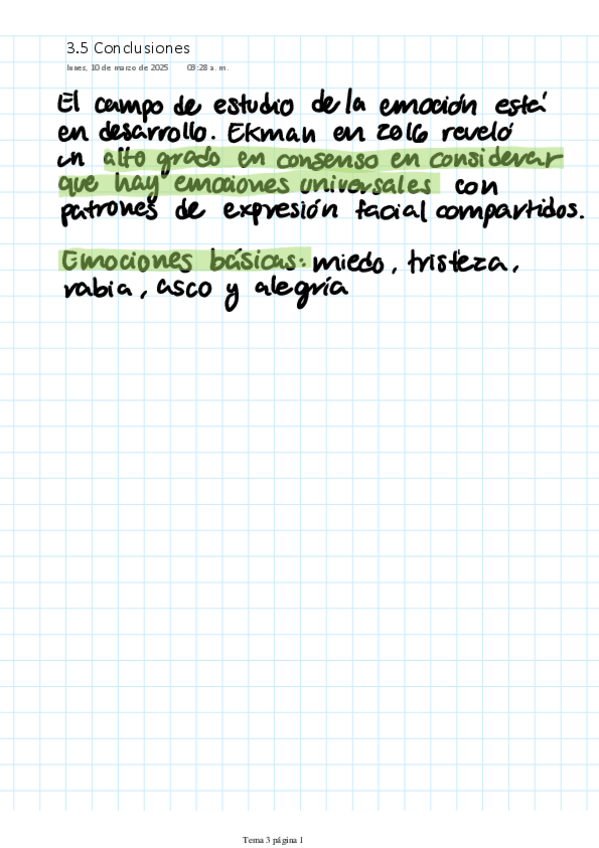 3.5 Conclusiones
lunes, 10 de marzo de 2025 03:28 a. m.
El campo de estudio de la emoción está
en desarrollo. Ekman en 2016 reveló
un alto grado en consenso en considerar
que hay emociones universales con
patrones de expresión facial compartidos.
Emociones básicas: miedo, tristeza,
rabia, asco y alegría
Tema 3 página 1